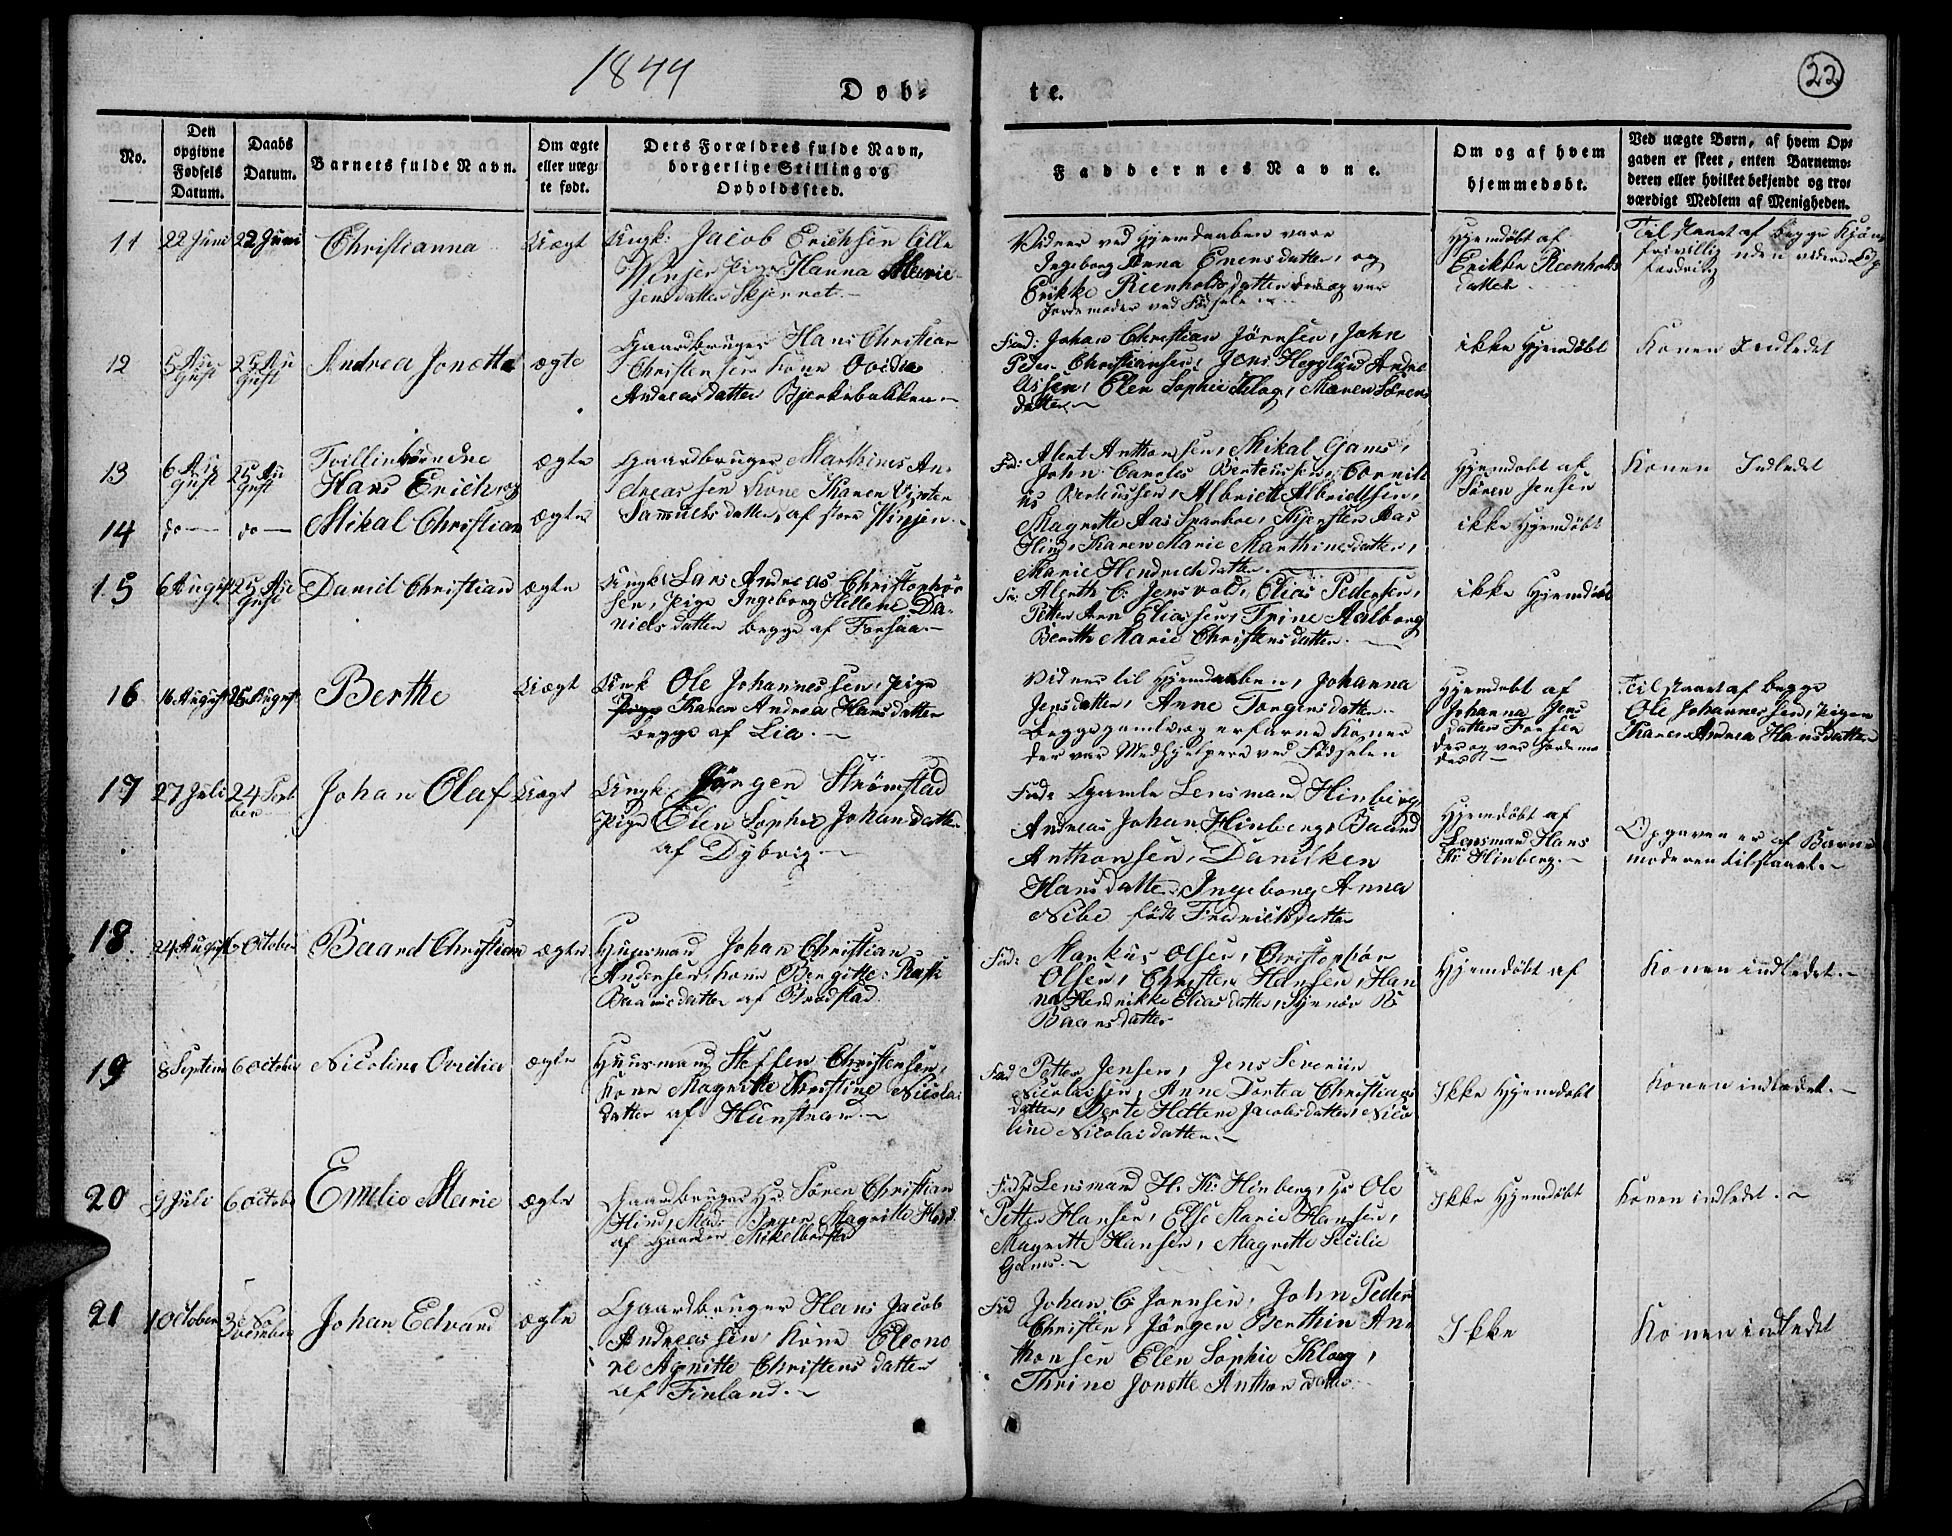 1844
22
Døb-
te.
No.
Den opgivne Fødsels Datum.
Daabs Datum.
Barnets fulde Navn.
Om ægte eller uæg-te født.
Dets Forældres fulde Navn, borgerlige Stilling og Opholdssted.
Faddernes Navne.
Om og af hvem hjemmedøbt.
Ved uægte Børn, af hvem Op-gaven er skeet, enten Barnemo-deren eller hvilket bekjendt og tro-værdigt Medlem af Menigheden.
11
22 Juni
22 Juni
Christianna
Uægt
Ungk: Jacob Erichsen lille
Pige Hanna Marie
Jensdatter Skjennet.
Vidner ved Hjemdaaben vare
Ingeborg Anna Enensdatter, og
Erikke Reenholdsdatter
Jordemoder ved Fødselen
Hjemdøbt af
Erikke Reenholds
datter
Tilstaaet af begge Kjøn
frivillig uden videre
fordring
12
5 Au
gust
25 Au
gust
Andrea Jonette
ægte
Gaardbruger Hans Christian
Christensen Kone Ovidia
Andreasdatter Bjerkebakken
Fad: Johan Christian Jørnsen, John
Peder Christiansen, Jens Hegglund Andre
assen, Elen Sophie Klog, Maren Sørens
datter
ikke Hjemdøbt
Konen Indledet
13
6 Au
gust
25 Au
gust
Tvillinbørnene
Hans Erich og
ægte
Gaardbruger Marthines An-
dreassen Kone Karen
Samuelsdatter, af store
Fad: Abert Anthonsen, Mikal Gams,
John Carolus Berteussen, Cornili
us Berteussen, Albriett Albriettsen,
Hjemdøbt af
Søren Jensen
Konen Indledet
14
do
do
Mikal Christian
ægte
Magrette Aas Spanboe, Kjersten Aas
Hind, Karen Marie Marthinesdatter,
Marie Hendrichdatter.
ikke Hjemdøbt
15
6 August
25 Au
gust
Daniel Christian
ægte
Ungk: Lars Andreas Christophør
sen, Pige Ingeborg Hellene Da-
nielsdatter begge af Forsaa
Fa: Abenth C: Jensvold, Elias Pedersen,
Petter Arn Eliassen, Trine Aalborg
Berithe Marie Christensdatter
ikke Hjemdøbt
16
16 August
25 August
Berthe
Uægt
Ungk Ole Johannessen, Pige
Karen Andrea Hansdatter
begge af Lia.
Vidner til Hjemdaaben, Johanna
Jensdatter, Anne Torgersdatter
begge gamle og erfarne Koner
der var Medhjelpere ved Fødselen
Hjemdøbt af
Johanna Jens
datter Forsaa
der og var Jordemo
der
Tilstaaet af begge
Ole Johannessen, Pigen
Karen Andrea Hansdatter
17
27 Juli
24 Sept
ber
Johan Olaf
Uægt
Ungk: Jørgen Strømstad
Pige Elen Sophie Johansdatter
af Dybvig
Fad: Gamle Lensmand Hinberg,
Andreas Johan Hinberg, Baard
Anthonsen, Danilken
Hansdatter, Ingeborg Anna
Nibe født Fredriksdatter
Hjemdøbt af
Lensmand Hans
K: Hinberg.
Opgaven er af Barne
moderen tilstaaet.
18
24 August
6 October
Baard Christian
ægte
Huusmand Johan Christian
Andersen, Kone Bergitte
Baarnsdatter af Brodstad
Fad: Markus Olsen, Christophør
Olsen, Christen Hansen, Han
na Hendrikke Eliasdatter, Synnør B
Baarnsdatter
Hjemdøbt af
Konen indledet.
19
8 Septem
6 October
Nicoline Ovidia
ægte
Huusmand Steffen Christensen,
Kone Magrette Kirstine Nicola
datter af Hunstran.
Fad Petter Jensen, Jens Severiin
Nicolaisen, Anne Dortea Christians
datter, Berte Hellene Jacobsdatter, Nico
line Nicolaidatter.
Ikke Hjemdøbt
Konen indledet.
20
9 Juli
6 October
Emelie Marie
ægte
Gaardbruger Hr. Søren Christian
Hind, Mad: Inger Magrette Hind
af Gaarden Mikelbostad
Fad: Lensmand H. K: Hinberg, Hr Ole
Petter Hansen, Else Marie Hansen,
Magrette Hansen, Magrette Secilie
Gams.
Ikke Hjemdøbt
Konen indledet.
21
1 October
3 No
vember
Johan Edvard
ægte
Gaardbruger Hans Jacob
Andreassen, Kone Eleono
re Agnitte Christensdatter
af Finland.
Fad Johan C Jørnsen, John Peder
Christen, Jørgen Berthin An
thonsen Elen Sophie Klog,
Thrine Jonette Anthondatter
Ikke
Konen indledet